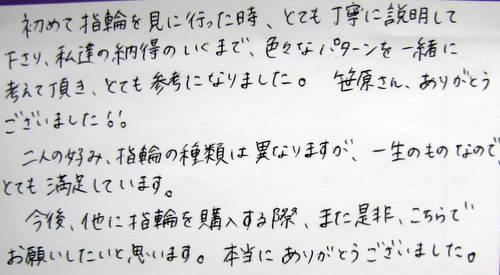 初めて指輪を見に行った時、とても丁寧に説明して
下さり、私達の納得のいくまで、色々なパターンを一緒に
考えて頂き、とても参考になりました。 笹原さん、ありがとう
ございました!!
二人の好み、指輪の種類は異なりますが、一生のものなので、
とても満足しています。
今後、他に指輪を購入する際、また是非、こちらで
お願いしたいと思います。本当にありがとうございました。